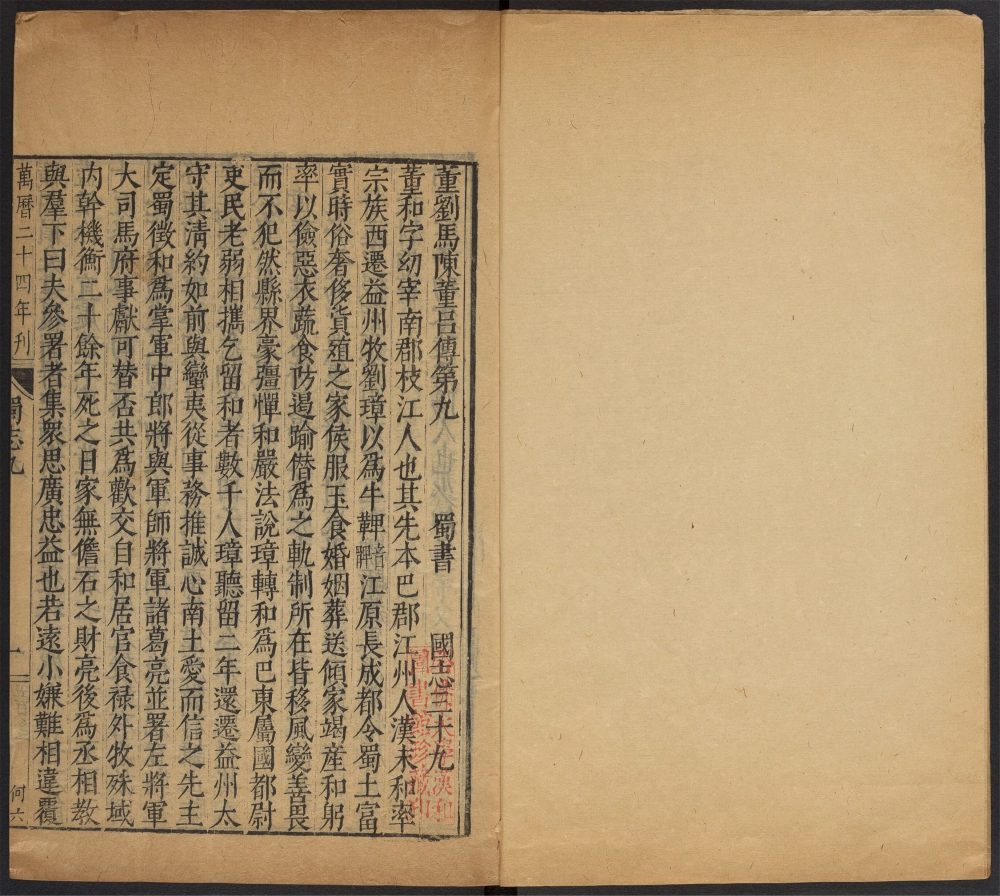 董劉馬陳董呂傳第九 蜀書 國志三十九
董和字幼宰南郡枝江人也其先本巴郡江州人漢末和率
宗族西遷益州牧劉璋以爲牛鞞音髀江原長成都令蜀土富
實時俗奢侈貨殖之家侯服玉食婚姻葬送傾家竭産和躬
率以儉惡衣蔬食防遏踰僭爲之軌制所在皆移風變善畏
而不犯然縣界豪彊憚和嚴法說璋轉和爲巴東屬國都尉
吏民老弱相攜乞留和者數千人璋聽留二年還遷益州太
守其清約如前與蠻夷從事務推誠心南土愛而信之先主
定蜀徵和爲掌軍中郎將與軍師將軍諸葛亮並署左將軍
大司馬府事獻可替否共爲歡交自和居官食禄外牧殊域
内幹機衡二十餘年死之日家無儋石之財亮後爲丞相教
與羣下曰夫參署者集衆思廣忠益也若遠小嫌難相違覆
萬曆二十四年刋
蜀志九
一
何六
漢和
圖書館珍藏印